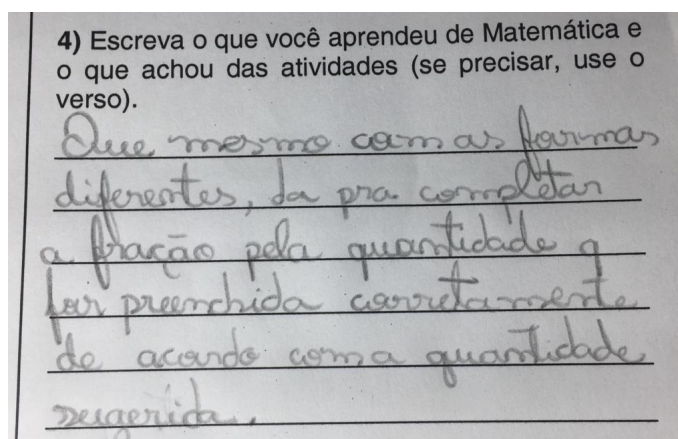 4) Escreva o que você aprendeu de Matemática e
o que achou das atividades (se precisar, use o
verso).
Que mesmo com as formas
diferentes, da pra completar
a fração pela quantidade q
for preenchida corretamente
de acordo com a quantidade
sugerida.